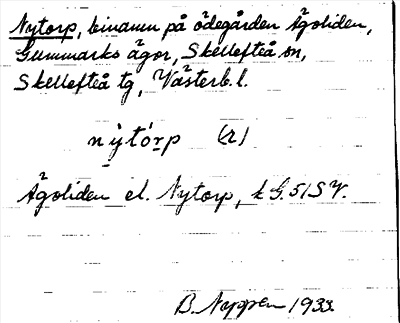 Nytorp, binamn på ödegården Ågoliden,
Gummarks ägor, Skellefteå sn,
Skellefteå tg, Västerb. l.
nỳtórp (r)
Ågoliden el. Nytorp, k G. 51 SV.
B. Nyppen 1933.